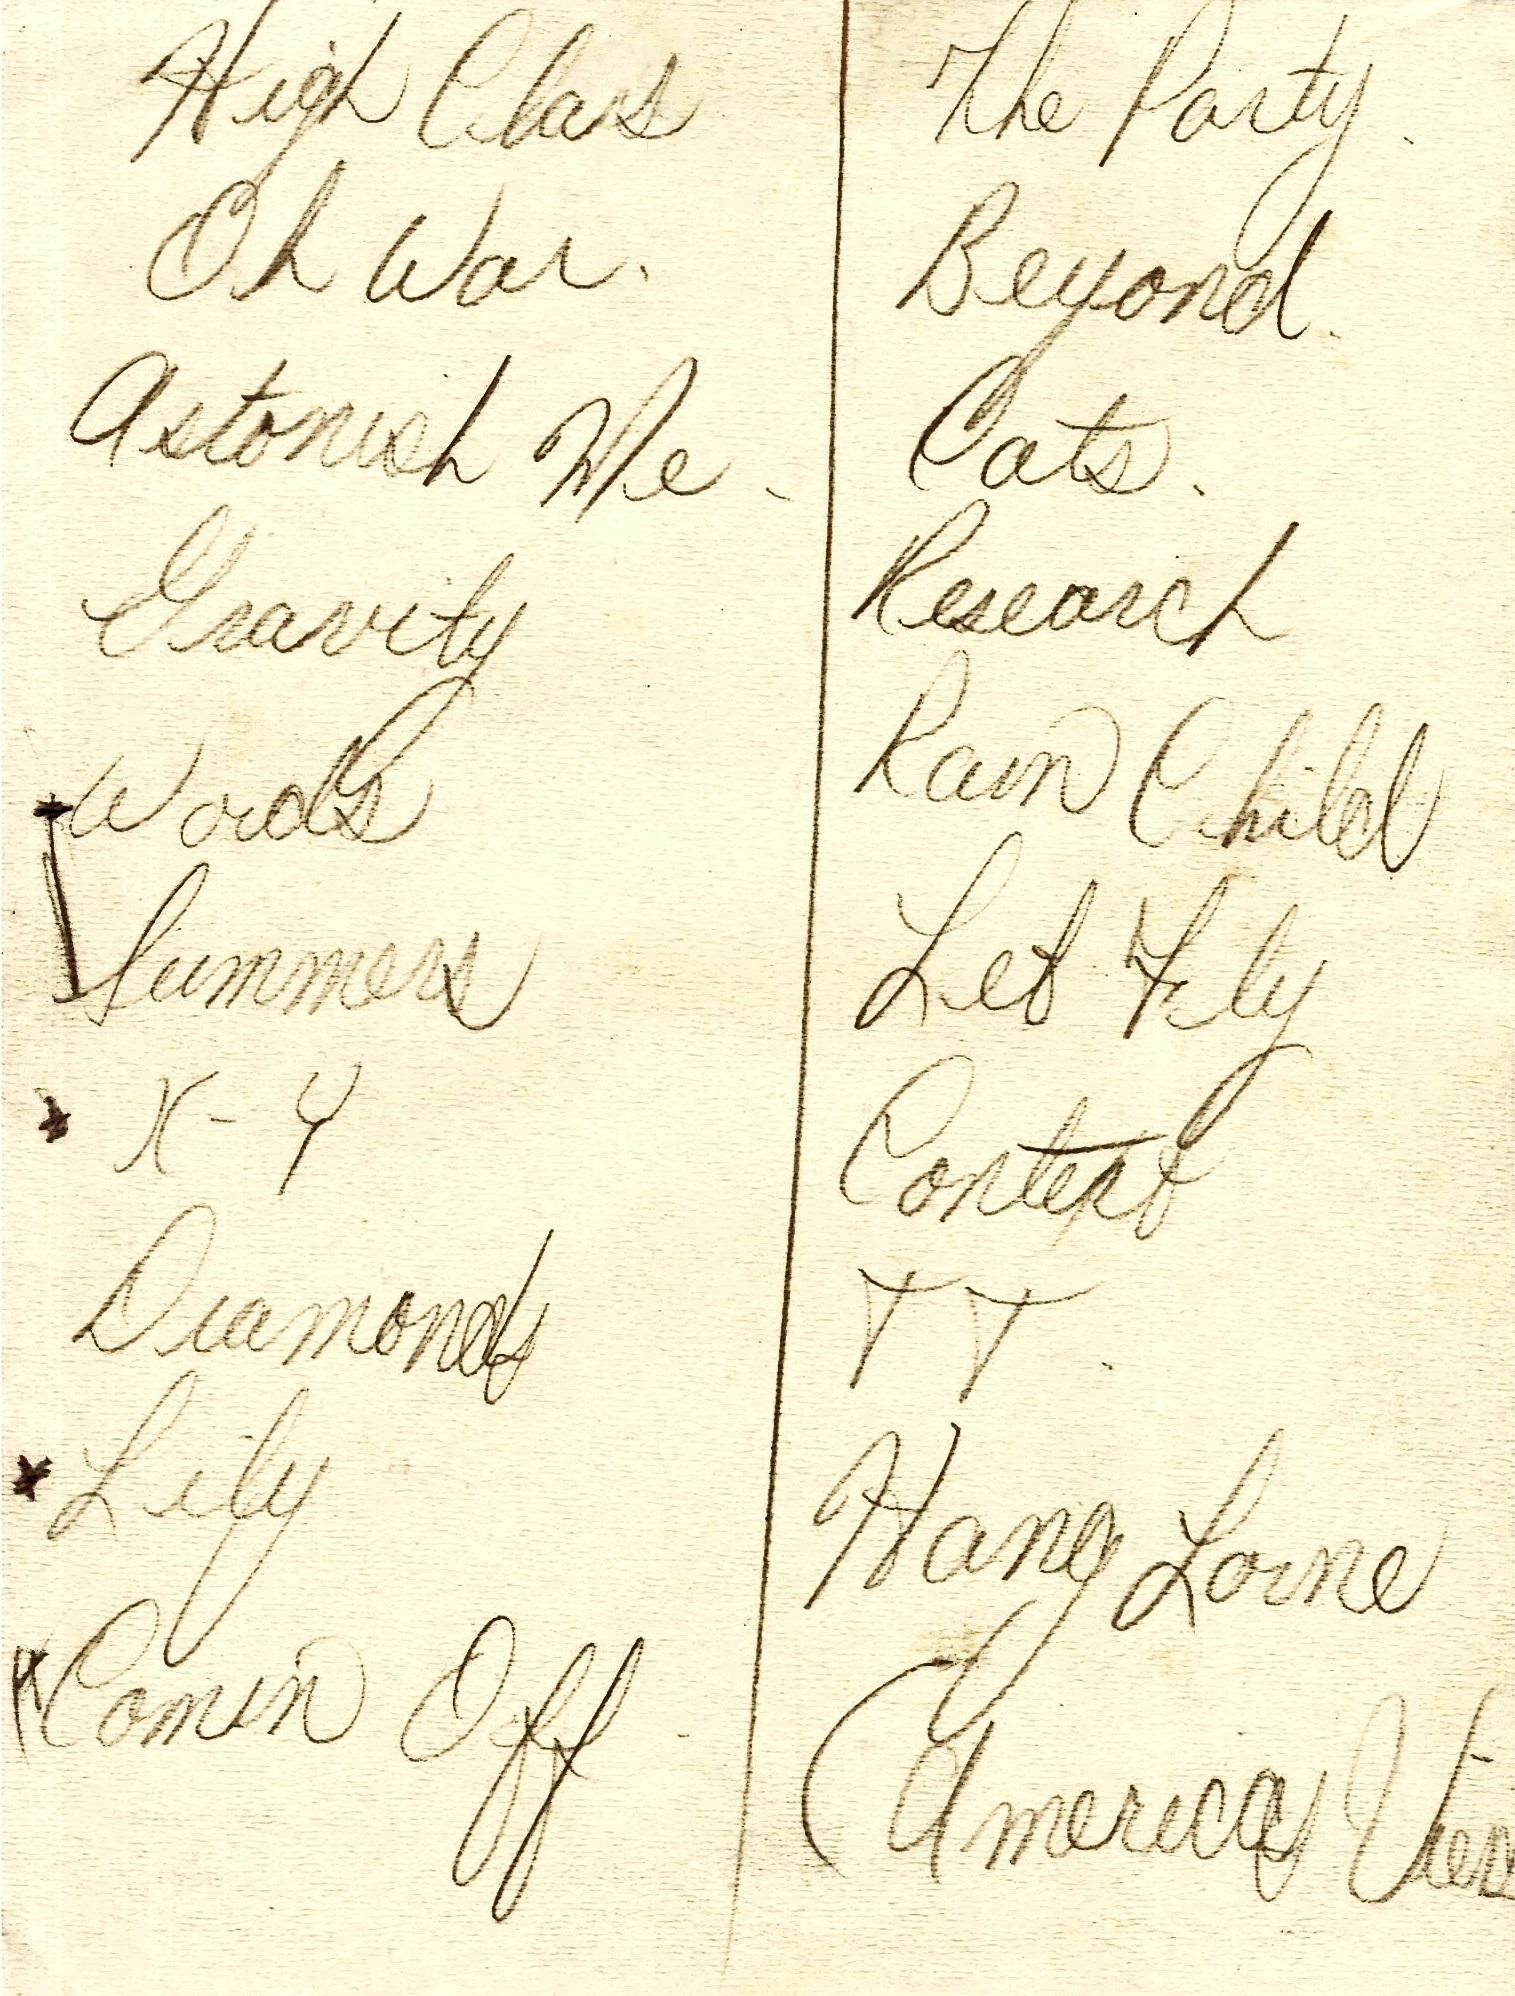 High Class
Oh War.
Astonish Me.
Gravity
Words
Summers
X-Y
Diamonds
Lily
Comin Off
The Party.
Beyond.
Cats.
Research
Rain Child
Let Fly
Context
TT.
Hang Lorne
(America